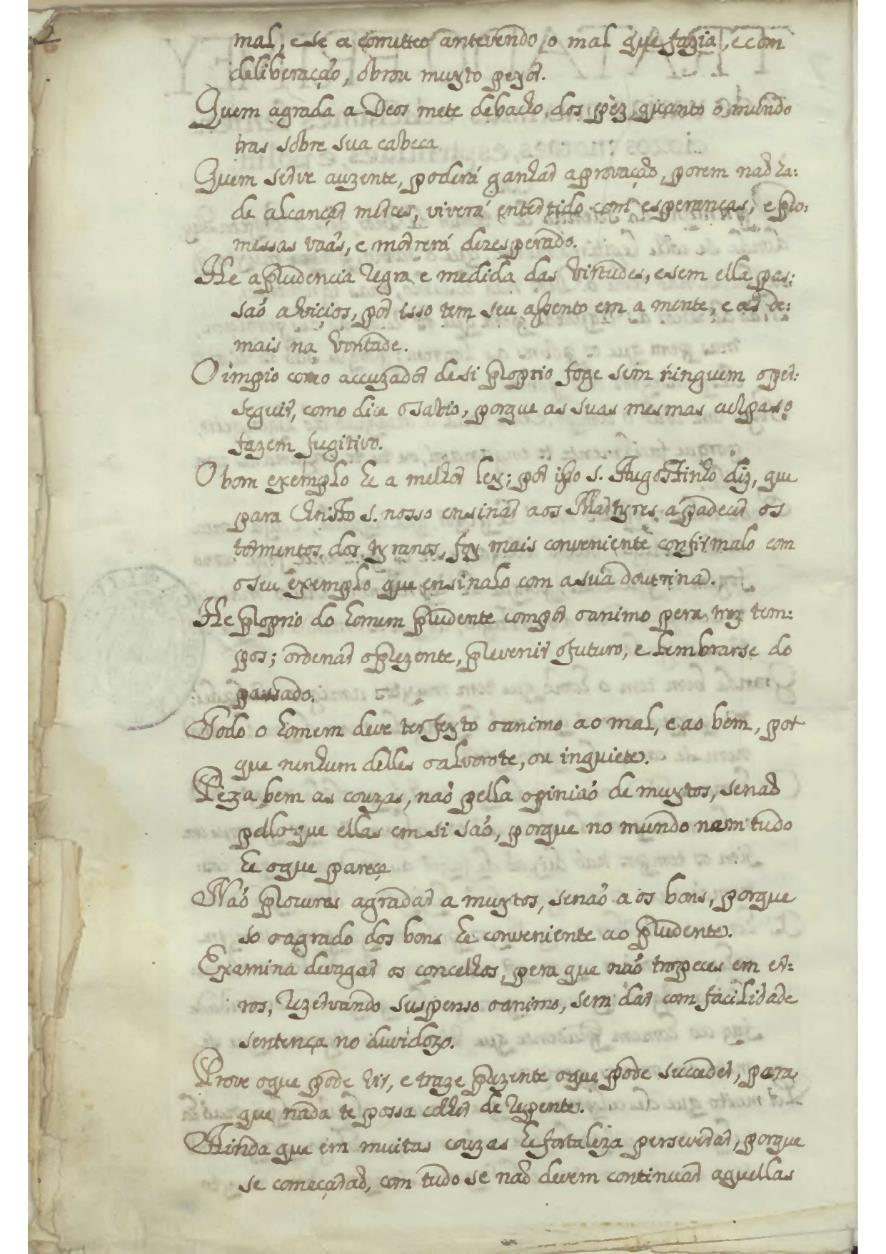 mal, e se a cometteo antevendo, o mal que fazia, e com
deliberação, obrou muyto peyor.
Quem agrada a Deos mete debacho, dos pèz, quanto o mundo
tras sobre sua cabeca
Quem serve auzente, poderá ganhar aprovação, porem naõ ha-
de alcançar merces, viverá entertido com esperanças, e pro-
messas vaãs, e morrerá dezesperado.
He a prudencia regra e medida das virtudes, e sem ella pas-
saõ a viçios, por isso tem seu assento em a mente, e as de-
mais na vontade.
O impio como accuzador de si proprio foge sem ninguem o per-
seguir, como dice o sabio, porque as suas mesmas culpas o
fazem fugitivo.
O bom exemplo he a melhor ley; por isso S. Augostinho diz, que
para Christo S. nosso ensinar aos Martyres a padecer os
tormentos, dos tyranos, foy mais conveniente confirmalo com
o seu exemplo que ensinalo com a sua doutrina.
He proprio do homem prudente compor o animo pera trez tem-
pos; ordenar o prezente, prevenir o futuro, e lembrarse do
passado.
Todo o homem deve ter feyto o animo ao mal, e ao bem, por
que nenhum delles o alvorote, ou inquiete.
Peza bem as couzas, naõ pella opiniaõ de muytos, senaõ
pello que ellas em si saõ, porque no mundo nem tudo
he o que parece
Naõ procures agradar a muytos, senaõ aos bons, porque
so o agrado dos bons he conveniente ao prudente.
Examina devagar os concelhos, pera que naõ tropeces em er-
ros, rezervando suspenso o animo, sem dar com facilidade
sentença no duvidozo.
Prove o que pòde vir, e traze prezente o que pòde succeder, para
que nada te possa colher de repente.
Ainda que em muitas couzas he fortaleza perseverar, porque
se começaraõ, com tudo se naõ devem continuar aquellas